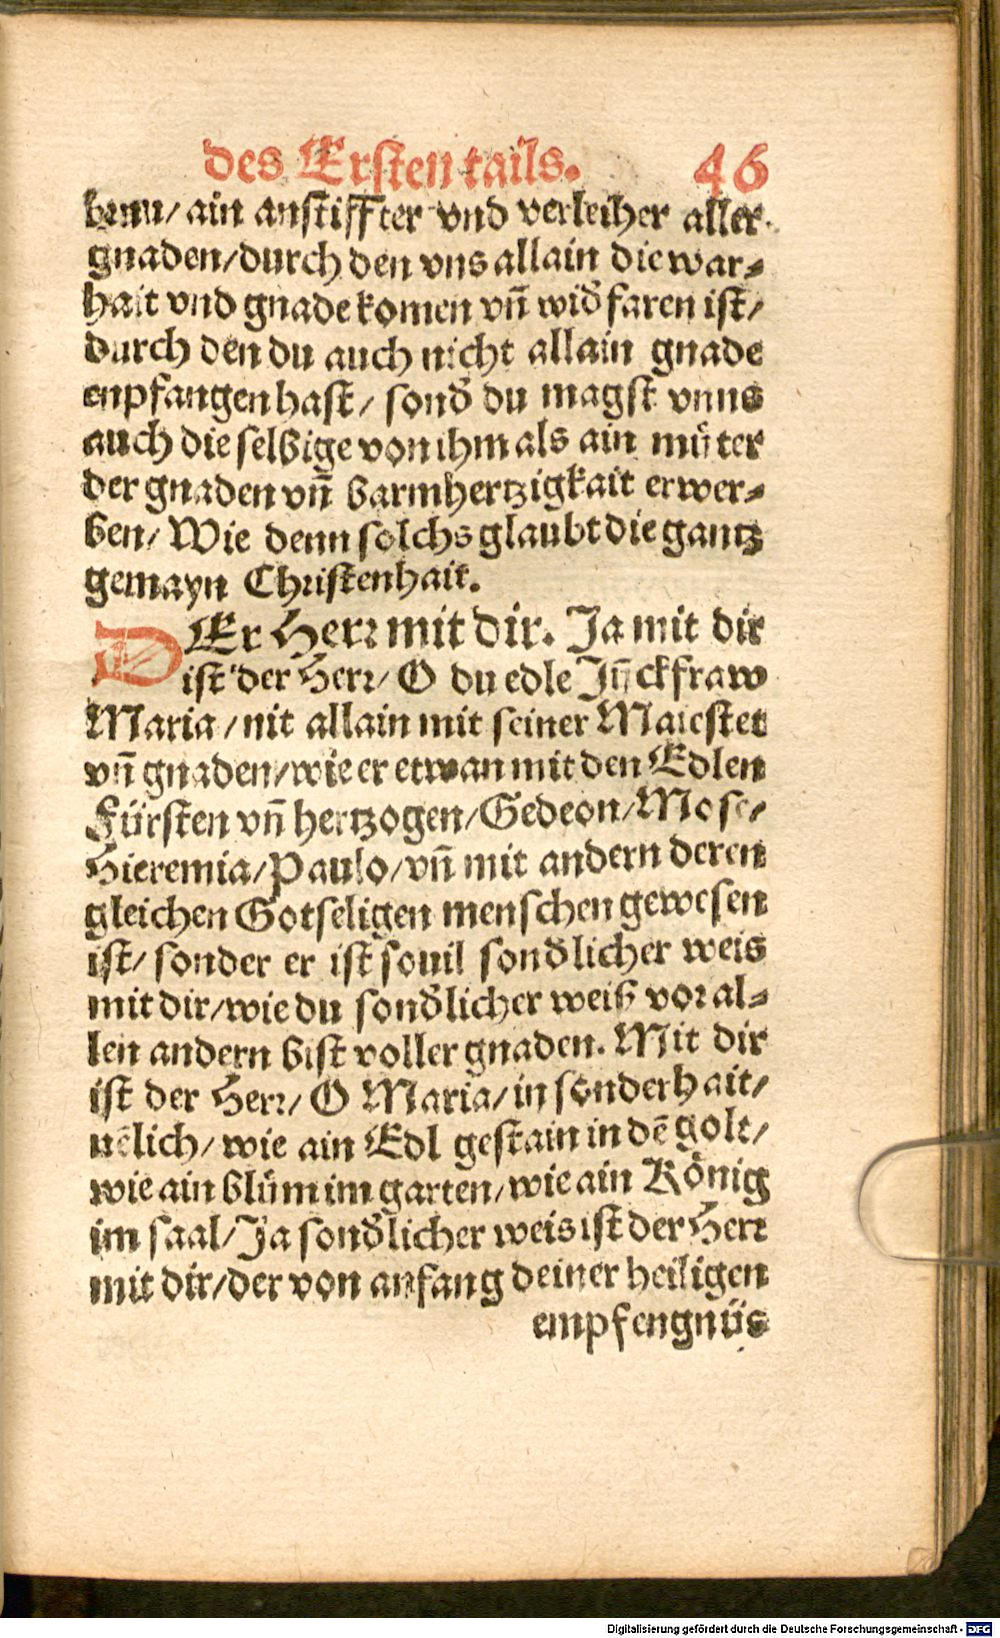 des Ersten tails. 46
/ ain anstiffter vnd verleiher aller
gnaden/durch den vns allain die war⸗
hait vnd gnade komen vn̄ wid̕ faren ist/
durch den du auch nicht allain gnade
enpfangen hast/ sond̕ du magst vnns
auch die selbige von ihm als ain mu͛ter
der gnaden vn̄ barmhertzigkait erwer⸗
ben/ Wie denn solchs glaubt die gantz
gemayn Christenhait.
DEr Herr mit dir. Ja mit dir
ist der Herr/ O du edle Jn̄ckfraw
Maria/nit allain mit seiner Maiestet
vn̄ gnaden/wie er etwan mit den Edlen
Fürsten vn̄ hertzogen/Gedeon/Mose/
Hieremia/Paulo/vn̄ mit andern deren
gleichen Gotseligen menschen gewesen
ist/ sonder er ist souil sond̕licher weis
mit dir/wie du sond̕licher weiß vor al⸗
len andern bist voller gnaden. Mit dir
ist der Herr/ O Maria/in sonderhait/
nēlich/ wie ain Edl gestain in dē golt/
wie ain blům im garten/wie ain König
im saal/Ja sond̕licher weis ist der Herr
mit dir/der von anfang deiner heiligen
empfengnüs
Digitalisierung gefördert durch die Deutsche Forschungsgemeinschaft - DFG